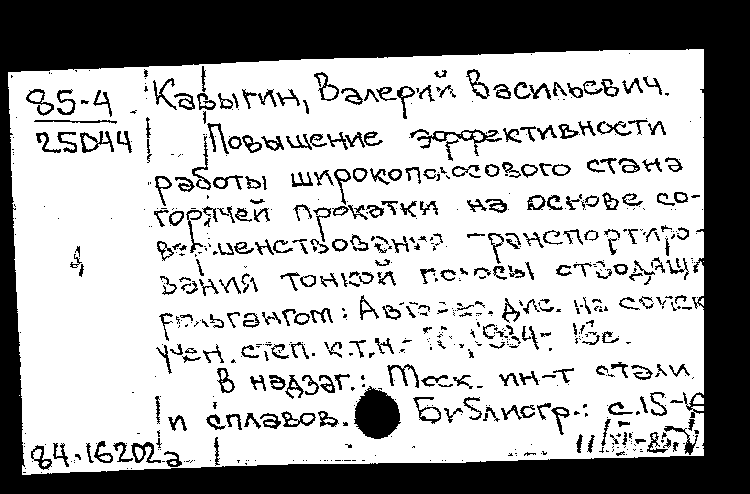 85-4 Кавыгин, Валерий Васильевич.
25044 Повышение эффективности
работы широкополосового стана
горячей прокатки на основе со-
вершенствования транспортиро-
вания тонкой полосы отводящим
рольгангом: Автореф. дис. на соиск
учен. степ. к.т.н.- М., 1984.- 16с.
В надзаг.: Моск. ин-т стали
и сплавов. Библиогр.: с.15-16
84-16202а